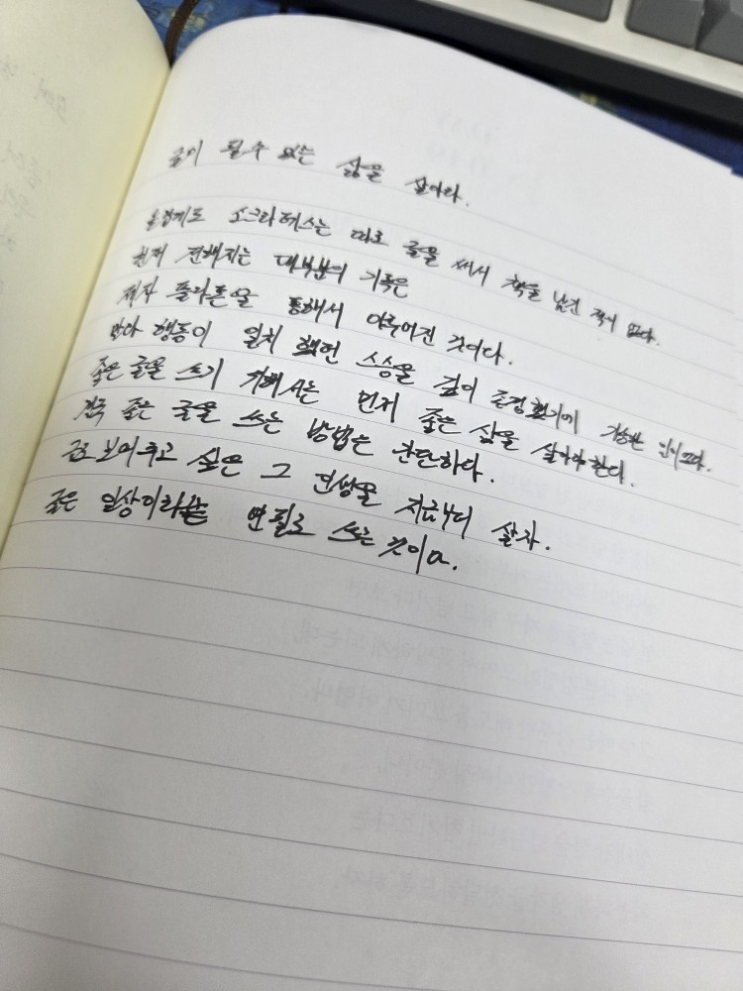 글이 될 수 있는 삶을 살아라.
놀랍게도 소크라테스는 따로 글을 써서 책을 남긴 적이 없다.
현재 전해지는 대부분의 기록은
제자 플라톤을 통해서 이루어진 것이다.
말과 행동이 일치했던 스승을 깊이 존경했기에 가능한 일이었다.
좋은 글을 쓰기 위해서는 먼저 좋은 삶을 살아야 한다.
결국 좋은 글을 쓰는 방법은 간단하다.
글로 보여주고 싶은 그 인생을 지금부터 살자.
글은 일상이라는 연필로 쓰는 것이다.